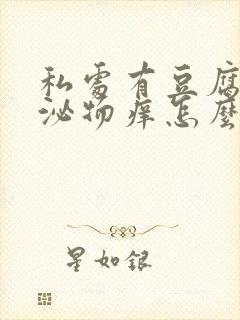 私處有豆腐
泌物痒怎麼
星如銀